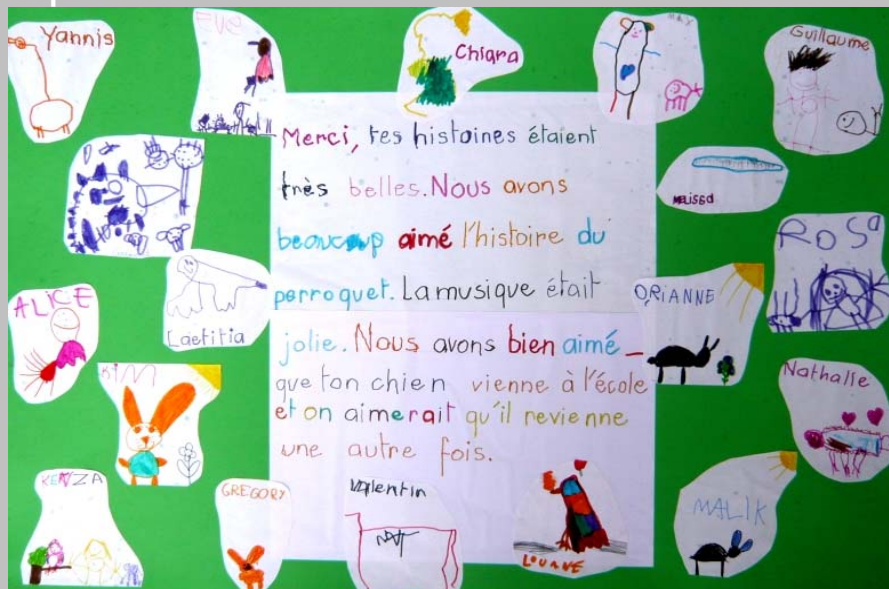 Yannis
EVE
Chiara
MAX
Guillaume
Merci, tes histoires étaient
très belles. Nous avons
beaucoup aimé l'histoire du
perroquet. La musique était
jolie. Nous avons bien aimé
que ton chien vienne à l'école
et on aimerait qu'il revienne
une autre fois.
MELissa
ROSa
Laetitia
ORIANNE
ALICE
KIM
Nathalie
KENZA
GREGORY
Valentin
LOUANE
MALIK